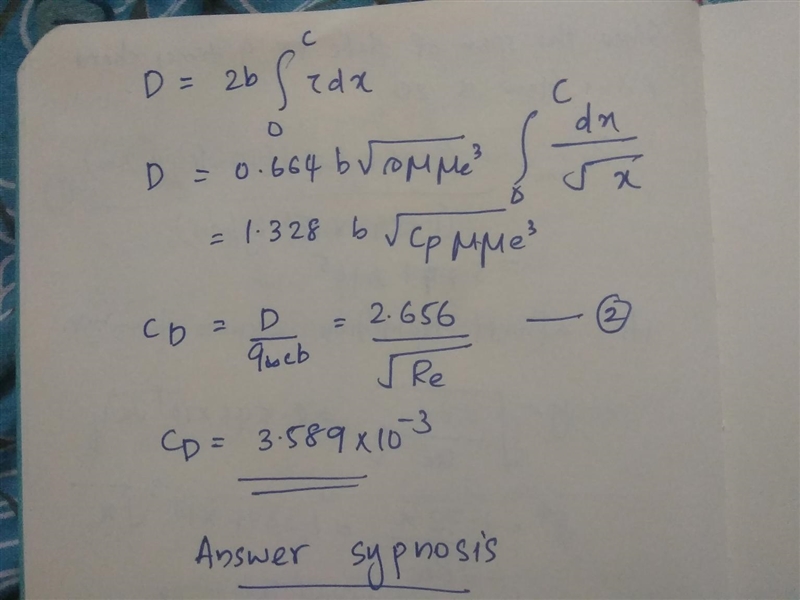 D = 2b ∫₀ᶜ τ dx
D = 0.664 b √ρμμe³ ∫₀ᶜ dx/√x
= 1.328 b √Cρ μμe³
CD = D/q∞cb = 2.656/√Re — ②
CD = 3.589 × 10⁻³
Answer sypnosis